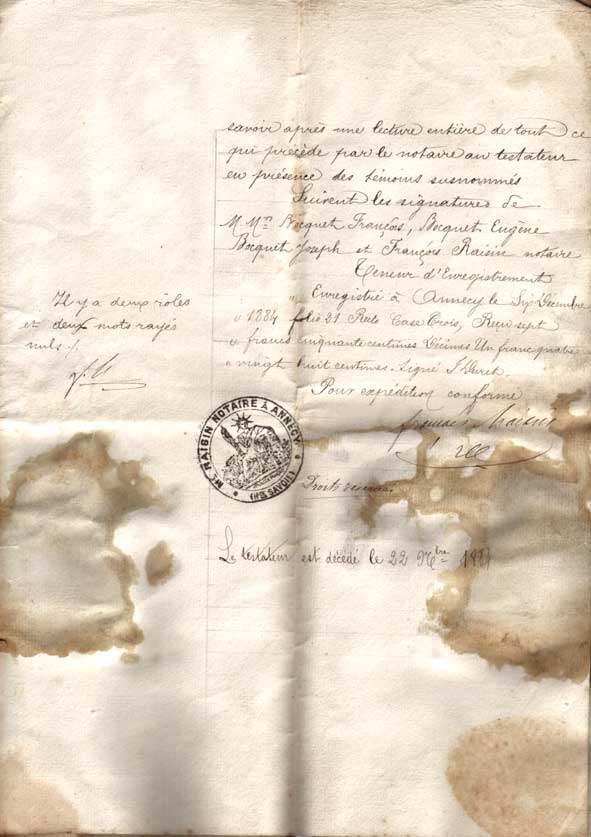 savoir après une lecture entière de tout ce
qui précède par le notaire au testateur
en présence des témoins susnommés
Suivent les signatures de
M. Mrs Bocquet François, Bocquet Eugène
Bocquet Joseph et François Raisin notaire
Teneur d'Enregistrement
Enregistré à Annecy le Six Décembre
1884 folio 31 Recto Case Trois, Reçu sept
francs cinquante centimes Décimes Un franc quatre
vingt huit centimes. Signé
Pour expédition conforme
françois Raisin
Il y a deux rôles
et deux mots rayés
nuls ./.
Me RAISIN NOTAIRE À ANNECY
(HTE SAVOIE)
Le testateur est décédé le 22 9bre